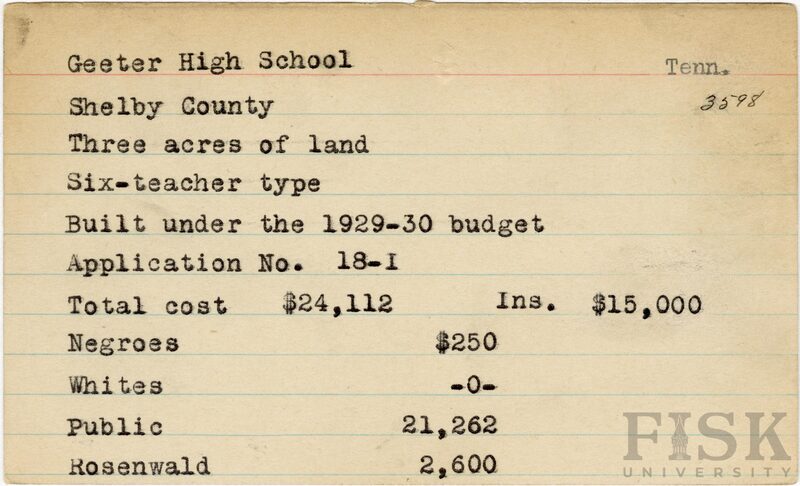 Geeter High School Tenn.
Shelby County 3598
Three acres of land
Six-teacher type
Built under the 1929-30 budget
Application No. 18-I
Total cost $24,112 Ins. $15,000
Negroes $250
Whites -0-
Public 21,262
Rosenwald 2,600
FISK
UNIVERSITY